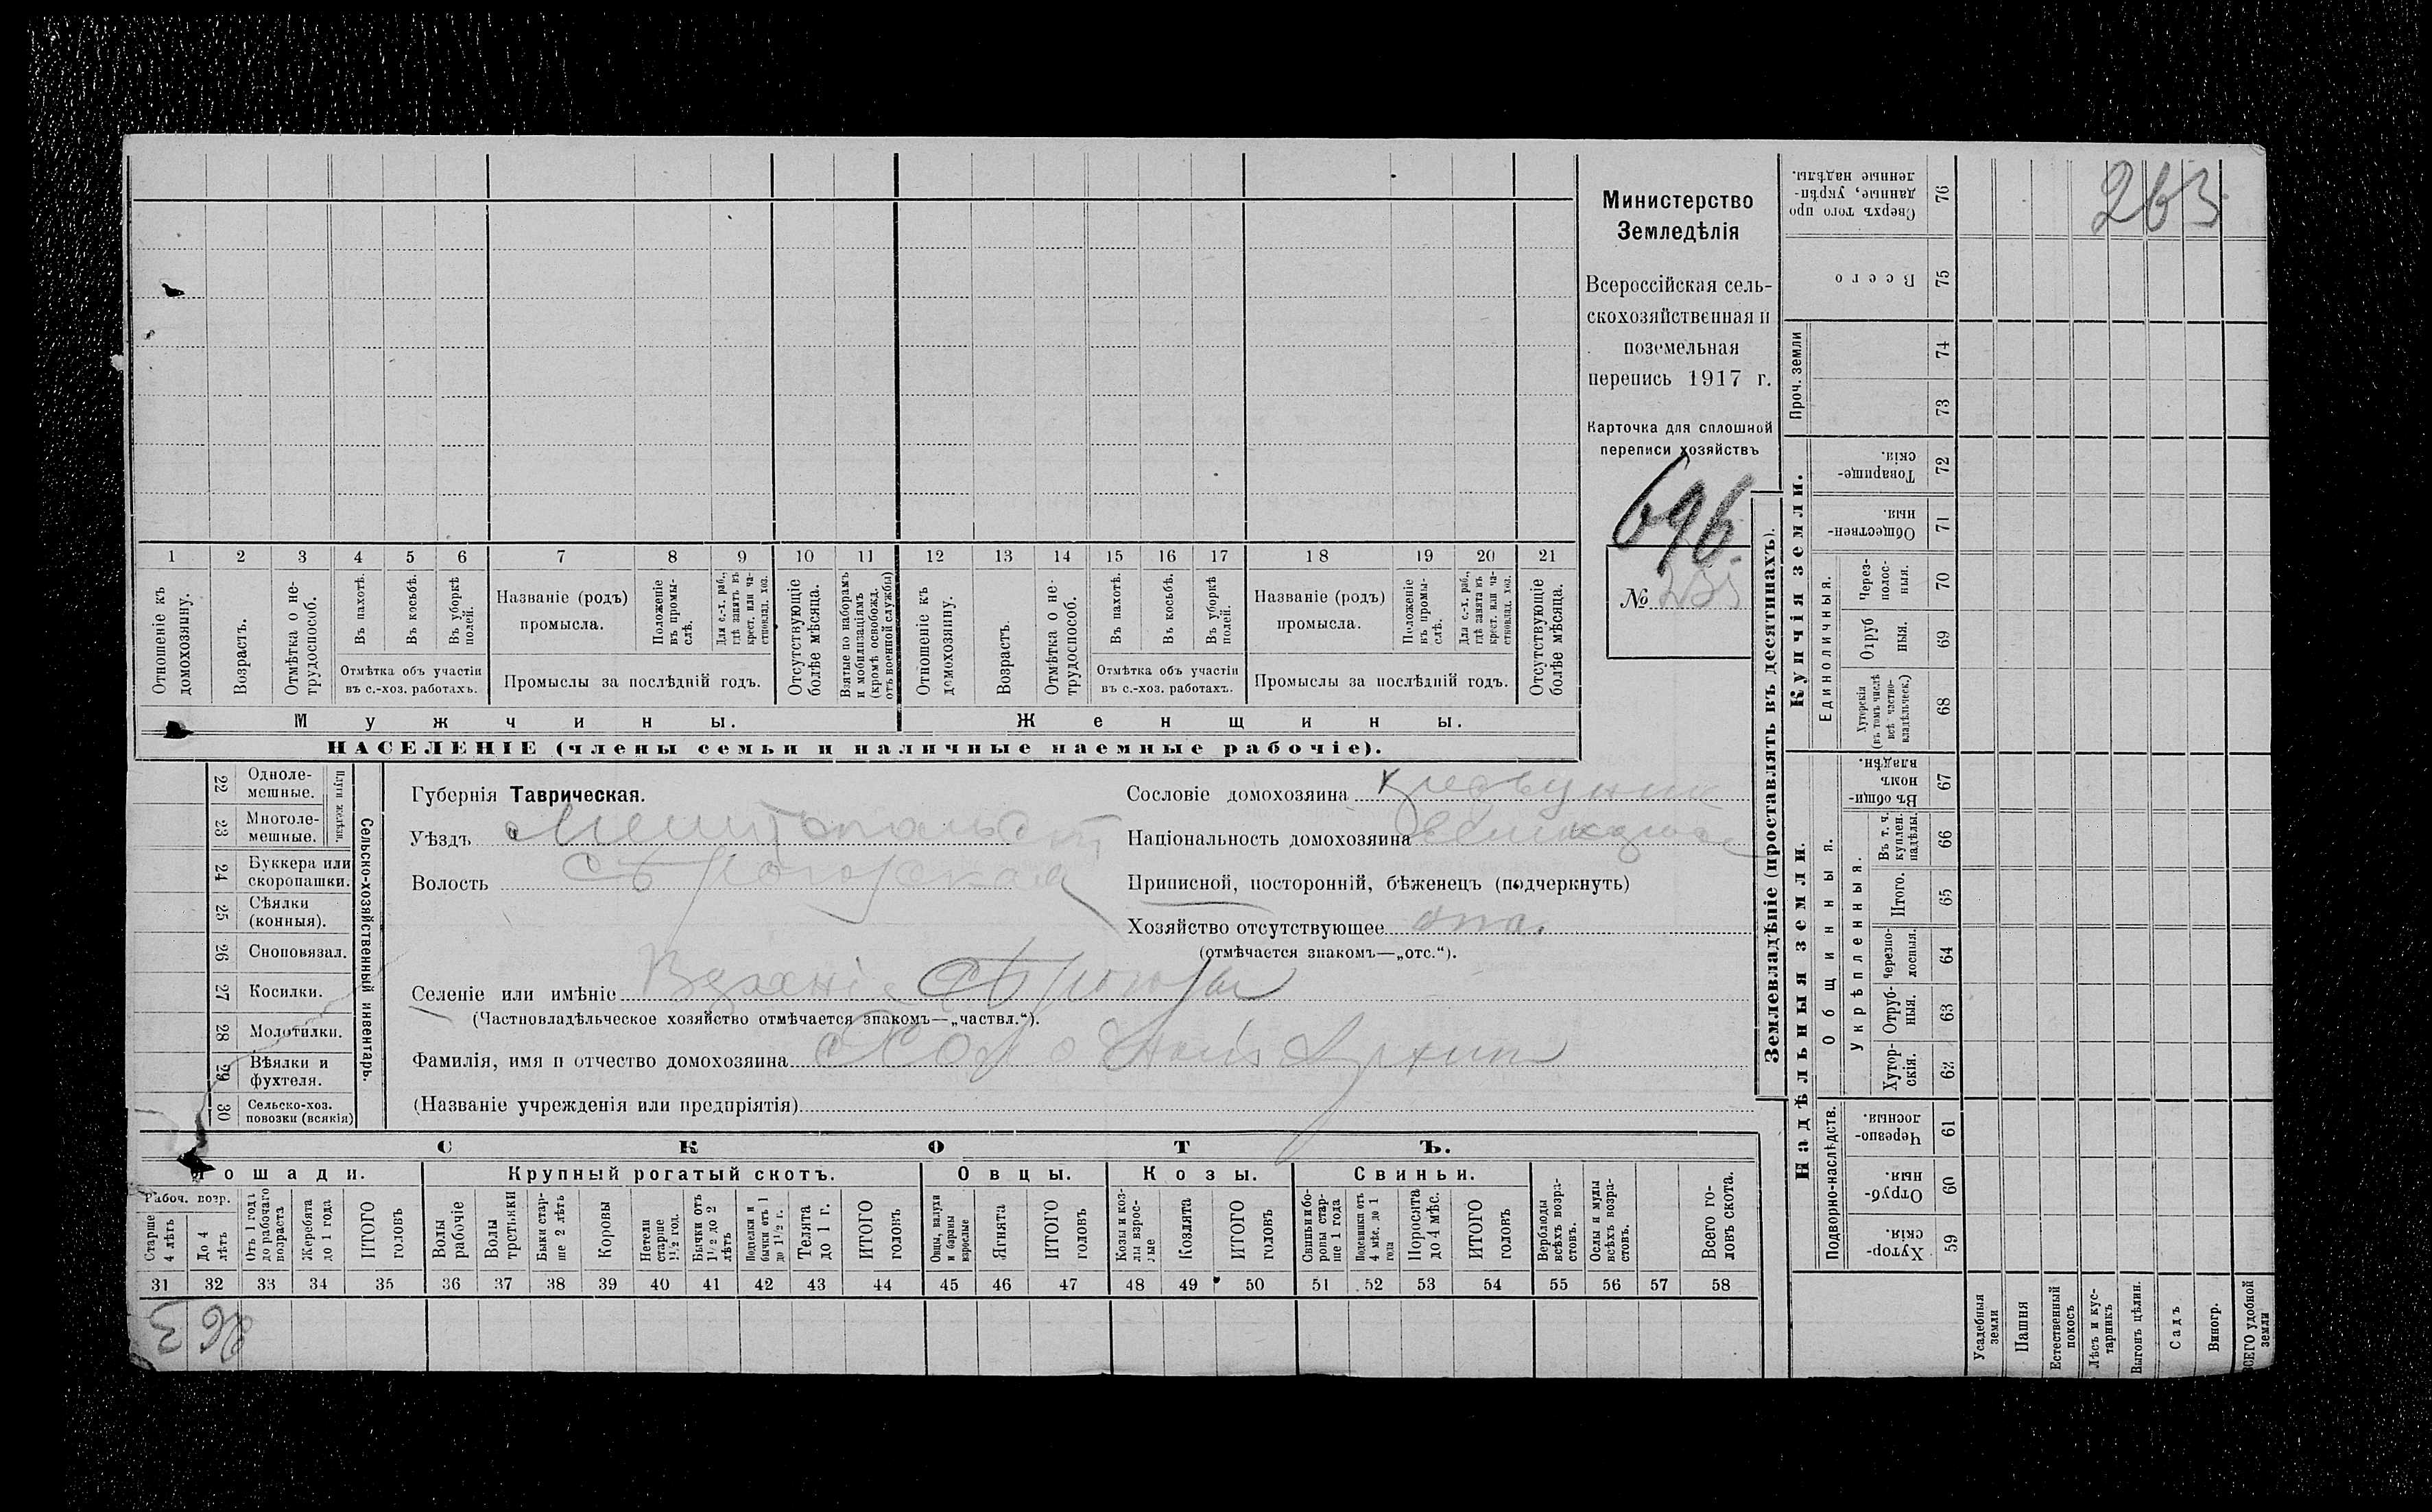 Министерство
Земледѣлія
Всероссійская сель-
скохозяйственная и
поземельная
перепись 1917 г.
Карточка для сплошной
переписи хозяйствъ
696
№
263
1 2 3 4 5 6 7 8 9 10 11 12 13 14 15 16 17 18 19 20 21
Отношеніе къ домохозяину.
Возрастъ.
Отмѣтка о не-трудоспособ.
Въ пахотѣ.
Въ косьбѣ.
Въ уборкѣ полей.
Отмѣтка объ участіи
въ с.-хоз. работахъ.
Названіе (родъ)
промысла.
Положеніе въ промы-слѣ.
Для с.-х. раб., гдѣ занятъ въ крест. или ча-стновлад. хоз.
Промыслы за послѣдній годъ.
Отсутствующіе болѣе мѣсяца.
Взятые по наборамъ и мобилизаціямъ (кромѣ освобожд. отъ военной службы)
Отношеніе къ домохозяину.
Возрастъ.
Отмѣтка о не-трудоспособ.
Въ пахотѣ.
Въ косьбѣ.
Въ уборкѣ полей.
Отмѣтка объ участіи
въ с.-хоз. работахъ.
Названіе (родъ)
промысла.
Положеніе въ промы-слѣ.
Для с.-х. раб., гдѣ занята въ крест. или ча-стновлад. хоз.
Промыслы за послѣдній годъ.
Отсутствующіе болѣе мѣсяца.
Мужчины.
Женщины.
НАСЕЛЕНІЕ (члены семьи и наличные наемные рабочіе).
Сельско-хозяйственный инвентарь.
22 Одноле-мешные.
23 Многоле-мешные.
24 Буккера или скоропашки.
25 Сѣялки (конныя).
26 Сноповязал.
27 Косилки.
28 Молотилки.
29 Вѣялки и фухтеля.
30 Сельско-хоз. повозки (всякія)
Губернія Таврическая.
Уѣздъ Мелитопольск
Волость
Селеніе или имѣніе
(Частновладѣльческое хозяйство отмѣчается знакомъ—„частвл.“).
Фамилія, имя и отчество домохозяина
(Названіе учрежденія или предпріятія)
Сословіе домохозяина
Національность домохозяина
Приписной, посторонній, бѣженецъ (подчеркнуть)
Хозяйство отсутствующее
(отмѣчается знакомъ—„отс.“).
СКОТЪ.
Лошади.
Крупный рогатый скотъ.
Овцы.
Козы.
Свиньи.
Рабоч. возр.
Старше 4 лѣтъ
До 4 лѣтъ
Отъ 1 года до рабочаго возраста
Жеребята до 1 года
ИТОГО головъ
Волы рабочіе
Волы третьяки
Быки стар-ше 2 лѣтъ
Коровы
Нетели старше 1½ год.
Бычки отъ 1½ до 2 лѣтъ
Подтелки и бычки отъ 1 до 1½ г.
Телята до 1 г.
ИТОГО головъ
Овцы, валухи и бараны взрослые
Ягнята
ИТОГО головъ
Козы и коз-лы взрос-лые
Козлята
ИТОГО головъ
Свиньи и бо-ровы стар-ше 1 года
Подсвинки отъ 4 мѣс. до 1 года
Поросята до 4 мѣс.
ИТОГО головъ
Верблюды всѣхъ возра-стовъ.
Ослы и мулы всѣхъ возра-стовъ.
Всего го-ловъ скота.
31 32 33 34 35 36 37 38 39 40 41 42 43 44 45 46 47 48 49 50 51 52 53 54 55 56 57 58
263
Землевладѣніе (проставлять въ десятинахъ).
Купчія земли.
Надѣльныя земли.
Сверхъ того про данные, укрѣп-ленные надѣлы. 76
Всего 75
Проч. земли
74
73
Товарище-скія. 72
Обществен-ныя. 71
Единоличныя.
Через-полос-ныя. 70
Отруб ныя. 69
Хуторскія (въ томъ числѣ всѣ частно-владѣльческ.) 68
Въ общи-номъ владѣн. 67
Общинныя.
Укрѣпленныя.
Въ т. ч. куплен. надѣлы. 66
Итого. 65
Черезпо-лосныя. 64
Отруб-ныя. 63
Хутор-скія. 62
Подворно-наслѣдств.
Черезпо-лосныя. 61
Отруб-ныя. 60
Хутор-скія. 59
Усадебныя земли
Пашня
Естественный покосъ
Лѣсъ и кус-тарникъ
Выгонъ цѣлин.
Садъ
Виногр.
ВСЕГО удобной земли